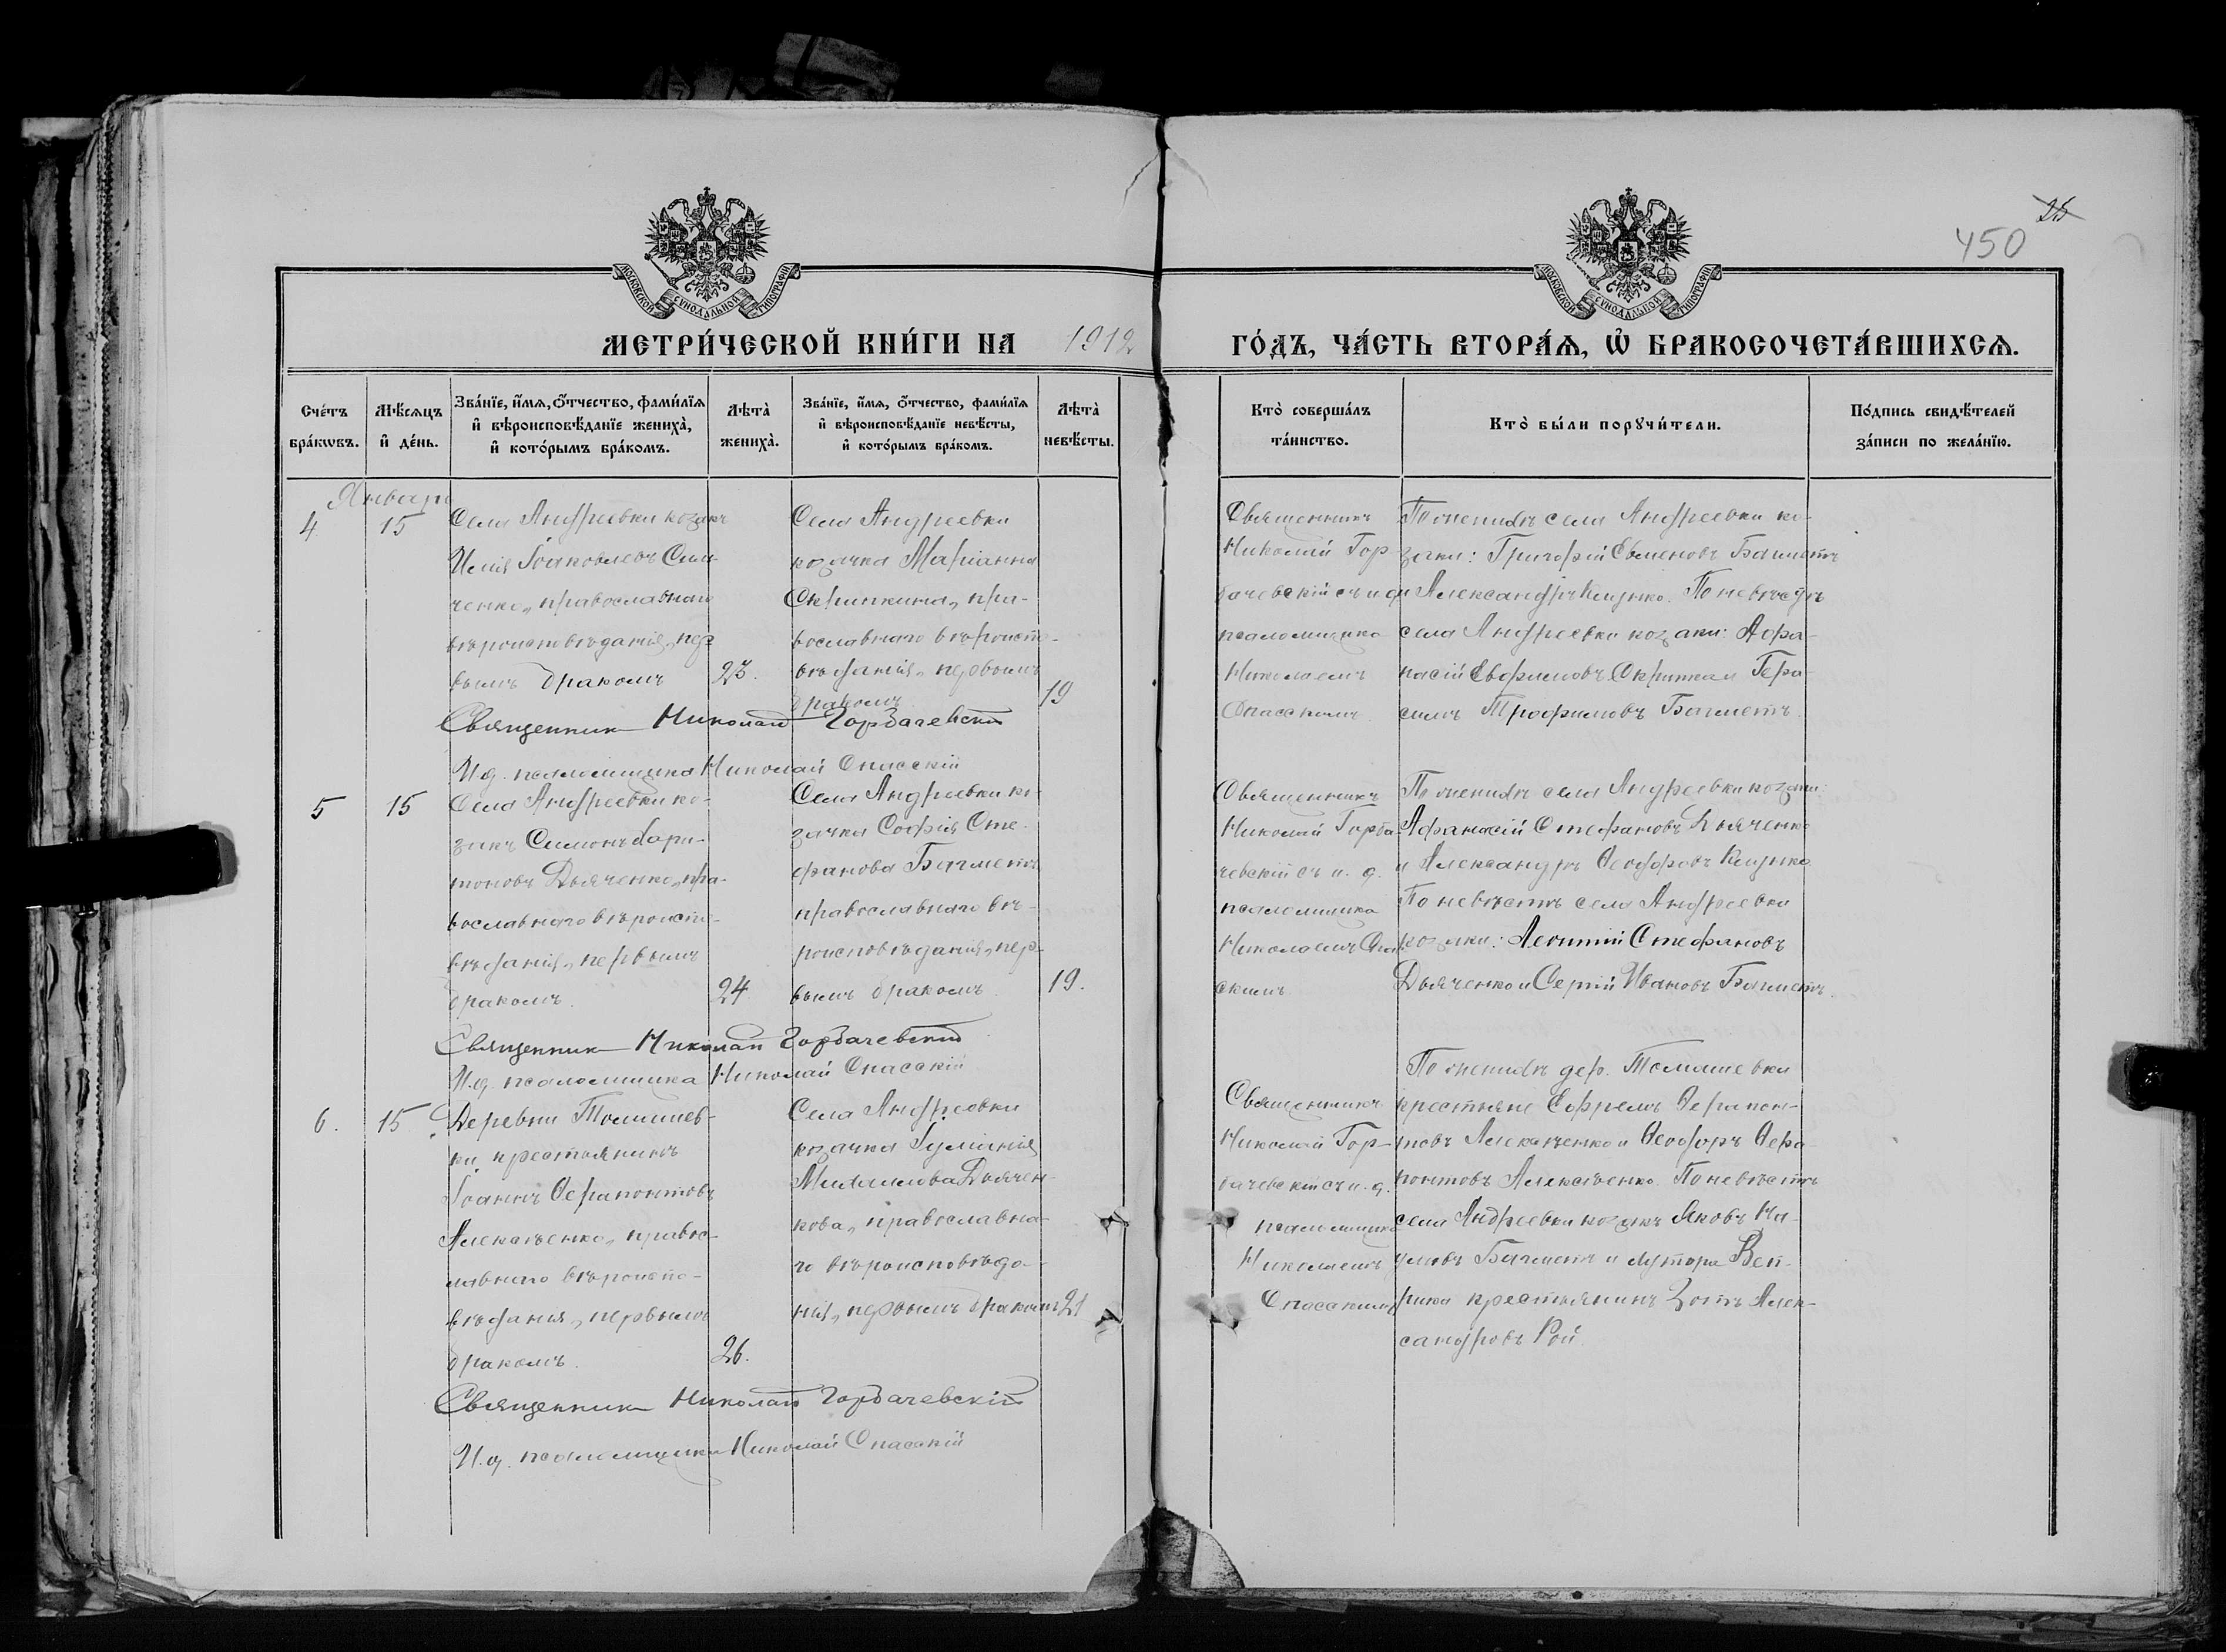 450
25
МОСКОВСКОЙ СѴНОДАЛЬНОЙ ТИПОГРАФІИ
МОСКОВСКОЙ СѴНОДАЛЬНОЙ ТИПОГРАФІИ
МЕТРИ́ЧЕСКОЙ КНИ́ГИ НА 1912
ГО́ДЪ, ЧА́СТЬ ВТОРА́Ѧ, Ѽ БРАКОСОЧЕТА́ВШИХСѦ.
Сче́тъ бра́кѡвъ.
Мѣ́сяцъ и҆ де́нь.
Зва́нїе, и҆́мѧ, ѻ҆́тчество, фами́лїѧ
и҆ вѣроисповѣ́данїе жениха̀,
и҆ кото́рымъ бра́комъ.
Лѣта̀ жениха̀.
Зва́нїе, и҆́мѧ, ѻ҆́тчество, фами́лїѧ
и҆ вѣроисповѣ́данїе невѣ́сты,
и҆ кото́рымъ бра́комъ.
Лѣта̀ невѣ́сты.
Кто̀ соверша́лъ
та́инство.
Кто̀ бы́ли порꙋчи́тели.
По́дпись свидѣ́телей
за́писи по жела́нїю.
Январь
4
15
Села Андреевки козакъ
Илія Іаковлевъ Сим-
ченко, православнаго
вѣроисповѣданія, пер-
вымъ бракомъ
23.
Села Андреевки
козачка Маріанна
Скрипкина, пра-
вославнаго вѣроиспо-
вѣданія, первымъ
бракомъ
19
Священникъ
Николай Гор-
бачевскій съ и д
псаломщика
Николаемъ
Спасскимъ
По женихѣ села Андреевки ко-
заки: Григорій Евменовъ Багметъ
и Александръ Клицко. По невѣстѣ
села Андреевки козаки: Афа-
насій Евфимовъ Скрипка и Гера-
симъ Трофимовъ Багметъ.
Священник Николай Горбачевский
И.д. псаломщика Николай Спасскій
5
15
Села Андреевки ко-
закъ Симонъ Хари-
тоновъ Дьяченко, пра-
вославнаго вѣроиспо-
вѣданія, первымъ
бракомъ.
24
Села Андреевки ко-
зачка Софія Сте-
фанова Багметъ
православнаго вѣ-
роисповѣданія, пер-
вымъ бракомъ.
19.
Священникъ
Николай Горба-
чевскій съ и. д.
псаломщика
Николаемъ Спас-
скимъ.
По женихѣ села Андреевки козаки:
Афанасій Стефановъ Дьяченко
и Александръ Ѳеодоровъ Клицко.
По невѣстѣ села Андреевки
козаки: Леонтій Стефановъ
Дьяченко и Сергій Ивановъ Багметъ.
Священник Николай Горбачевский
И.д. псаломщика Николай Спасскій
6.
15
Деревни Томашев-
ки крестьянинъ
Іоаннъ Ѳерапонтовъ
Алексѣенко, правос-
лавнаго вѣроиспо-
вѣданія, первымъ
бракомъ.
26.
Села Андреевки
козачка Іуліанія
Михаилова Дьячен-
кова, православна-
го вѣроисповѣда-
нія, первымъ бракомъ
21
Священникъ
Николай Гор-
бачевскій съ и. д.
псаломщика
Николаемъ
Спасскимъ
По женихѣ дер. Томашевки
крестьяне Ефремъ Ѳерапон-
товъ Алексѣенко и Ѳеодоръ Ѳера-
понтовъ Алексѣенко. По невѣстѣ
села Андреевки козакъ Яковъ На-
умовъ Багметъ и хутора Веп-
рика крестьянинъ Зотъ Алек-
сандровъ Рой.
Священник Николай Горбачевскій
И.д. псаломщика Николай Спасскій